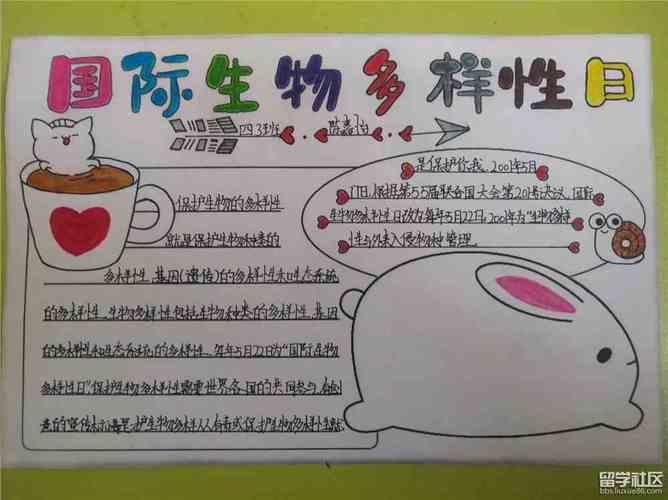 国际生物多样性日
四3班 陈嘉
是保护你我。2001年5月
17日,根据第55届联合国大会第201号决议,国际
生物多样性日改为每年5月22日,2001年为"生物多样
性与外来入侵物种管理。
保护生物的多样性
就是保护生物种类的
多样性,基因(遗传)的多样性和生态系统
的多样性。生物多样性包括生物种类的多样性、基因
的多样性和生态系统的多样性。每年5月22日为"国际生物
多样性日"。保护生物多样性需要世界各国的共同参与。有创
意的宣传标语是:护生物多样人人有责或保护生物多样性就
留学社区
bbs.liuxue86.com